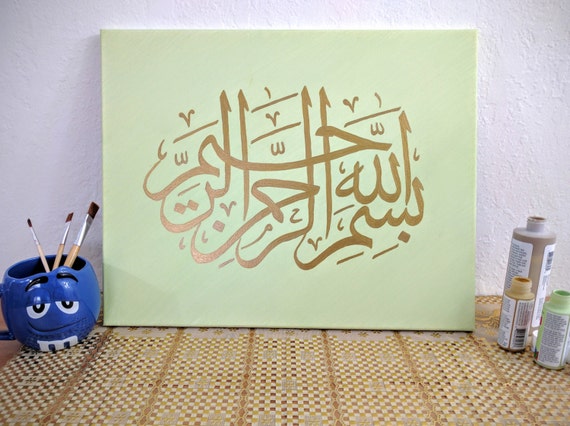 بِسْمِ اللَّهِ الرَّحْمَنِ الرَّحِيمِ
m